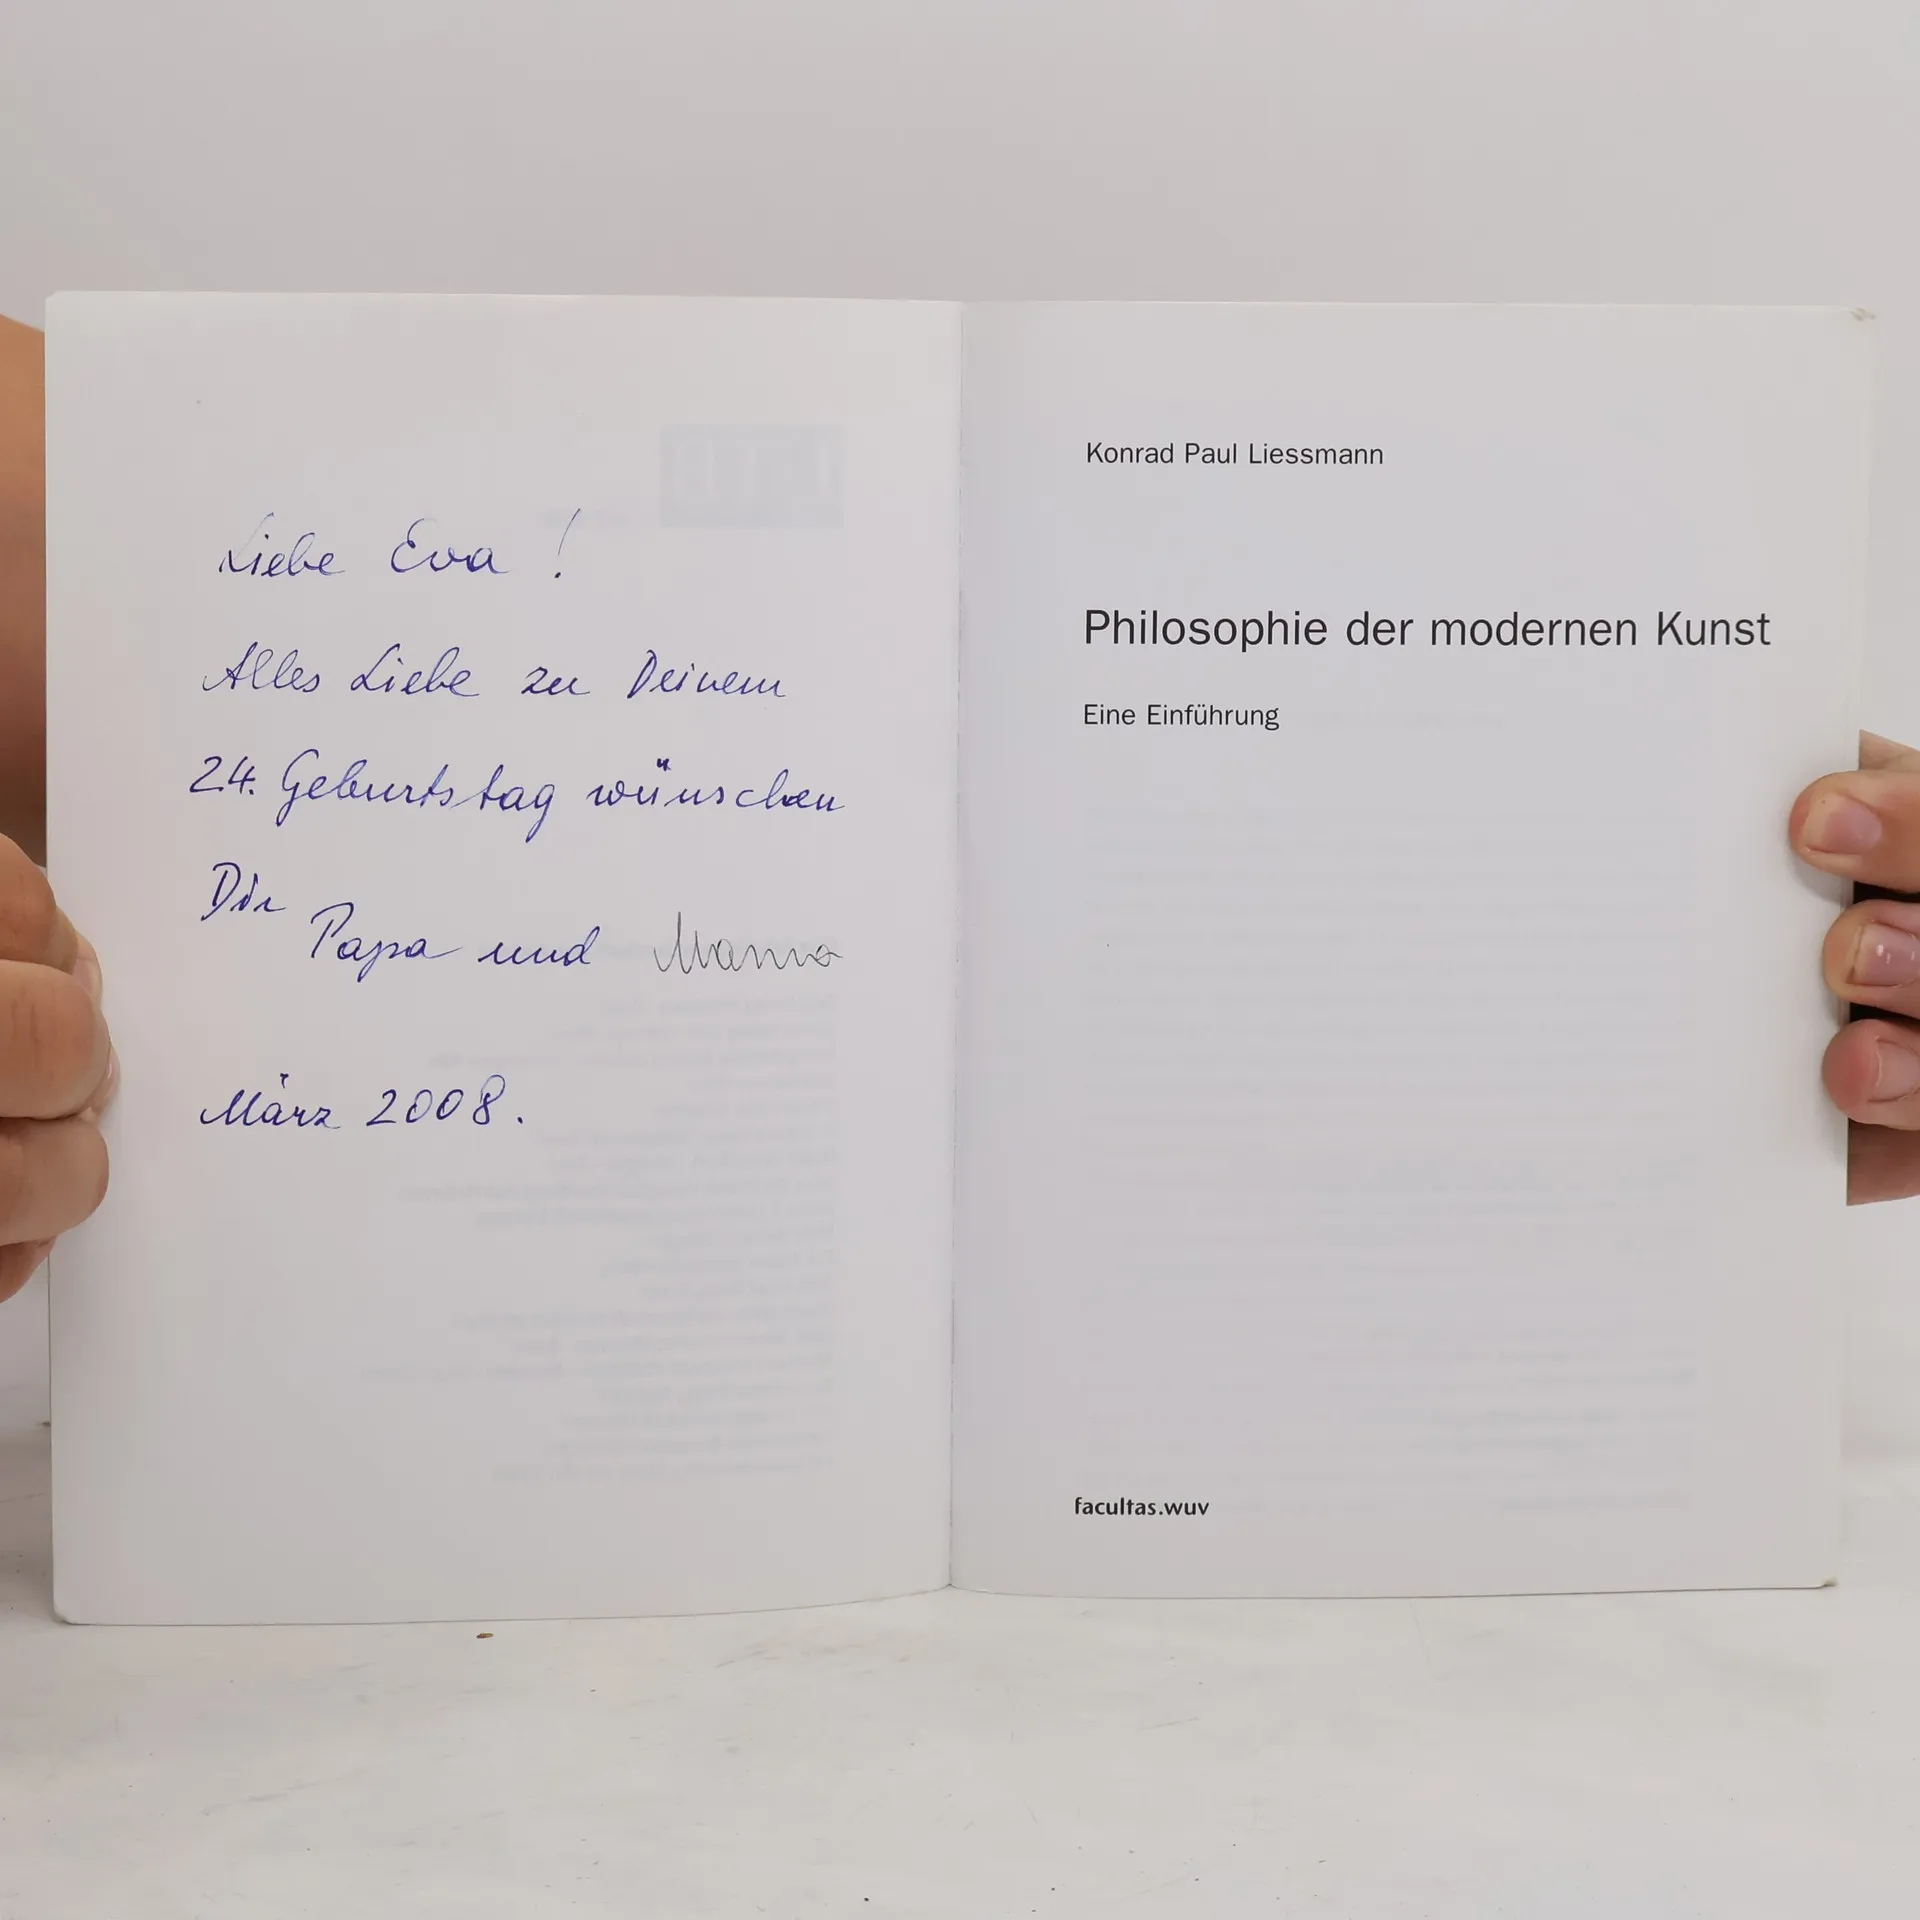 Liebe Eva!
Alles Liebe zu Deinem
24. Geburtstag wünschen
Dir
Papa und Mama
März 2008.
Konrad Paul Liessmann
Philosophie der modernen Kunst
Eine Einführung
facultas.wuv